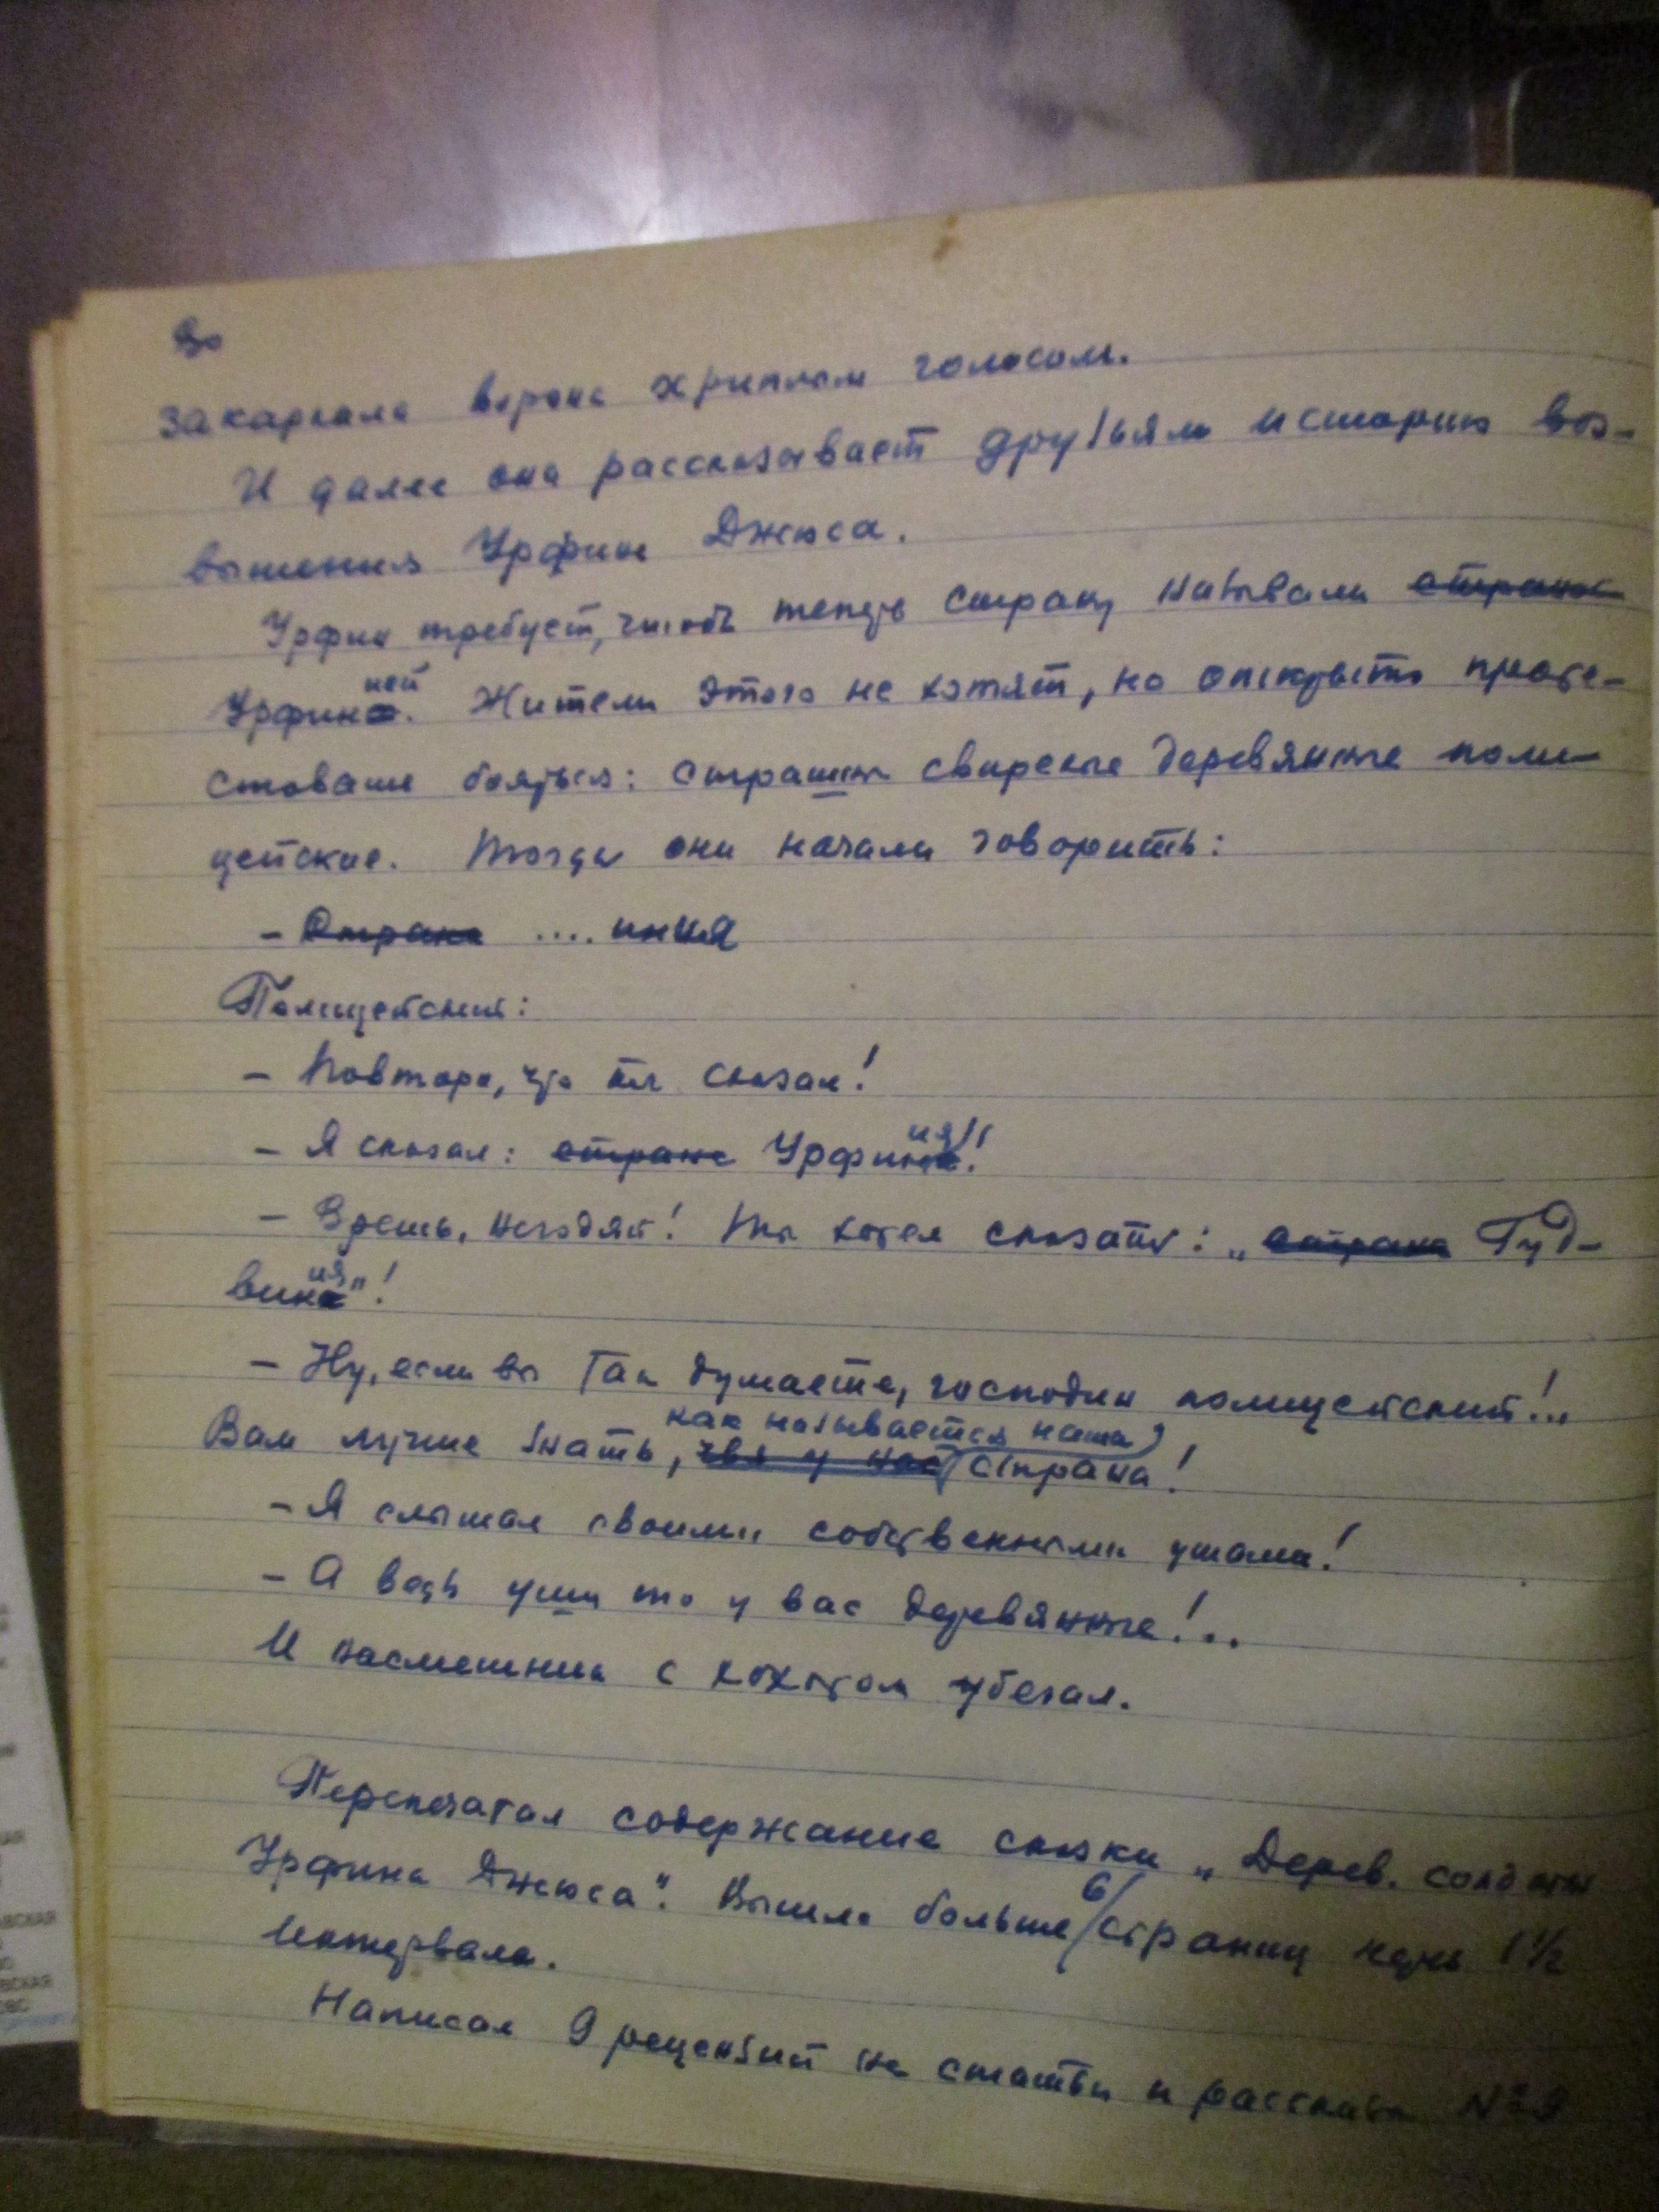 30
закаркала ворона хриплым голосом.
И далее она рассказывает друзьям историю воз-
вышения Урфина Джюса.
Урфин требует, чтобы теперь страну называли страной
Урфинией. Жители этого не хотят, но открыто проте-
стовать боятся: страшны свирепые деревянные поли-
цейские. Тогда они начали говорить:
– Страна .... иния
Полицейский:
– Повтори, что ты сказал!
– Я сказал: страна Урфиния!!
– Врешь, негодяй! Ты хотел сказать: „страна Гуд-
виния"!
– Ну, если вы так думаете, господин полицейский!..
как называется наша
Вам лучше знать, чья у нас страна!
– Я слышал своими собственными ушами!
– А ведь уши то у вас деревянные!..
И насмешник с хохотом убежал.
Перепечатал содержание сказки „Дерев. солдаты
Урфина Джюса". Вышло больше 6 страниц через 1½
интервала.
Написал 9 рецензий на статьи и рассказы №9
АВСКАЯ
ВСКАЯ